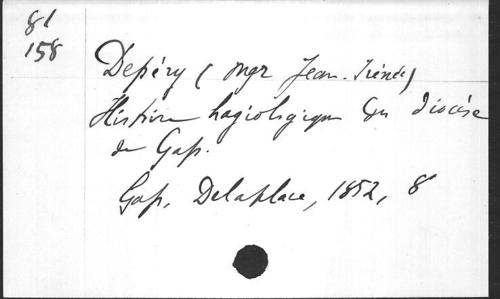 81
158
Depéry (Mgr Jean-Irénée)
Histoire hagiologique du diocèse
de Gap.
Gap, Delaplace, 1852, 8